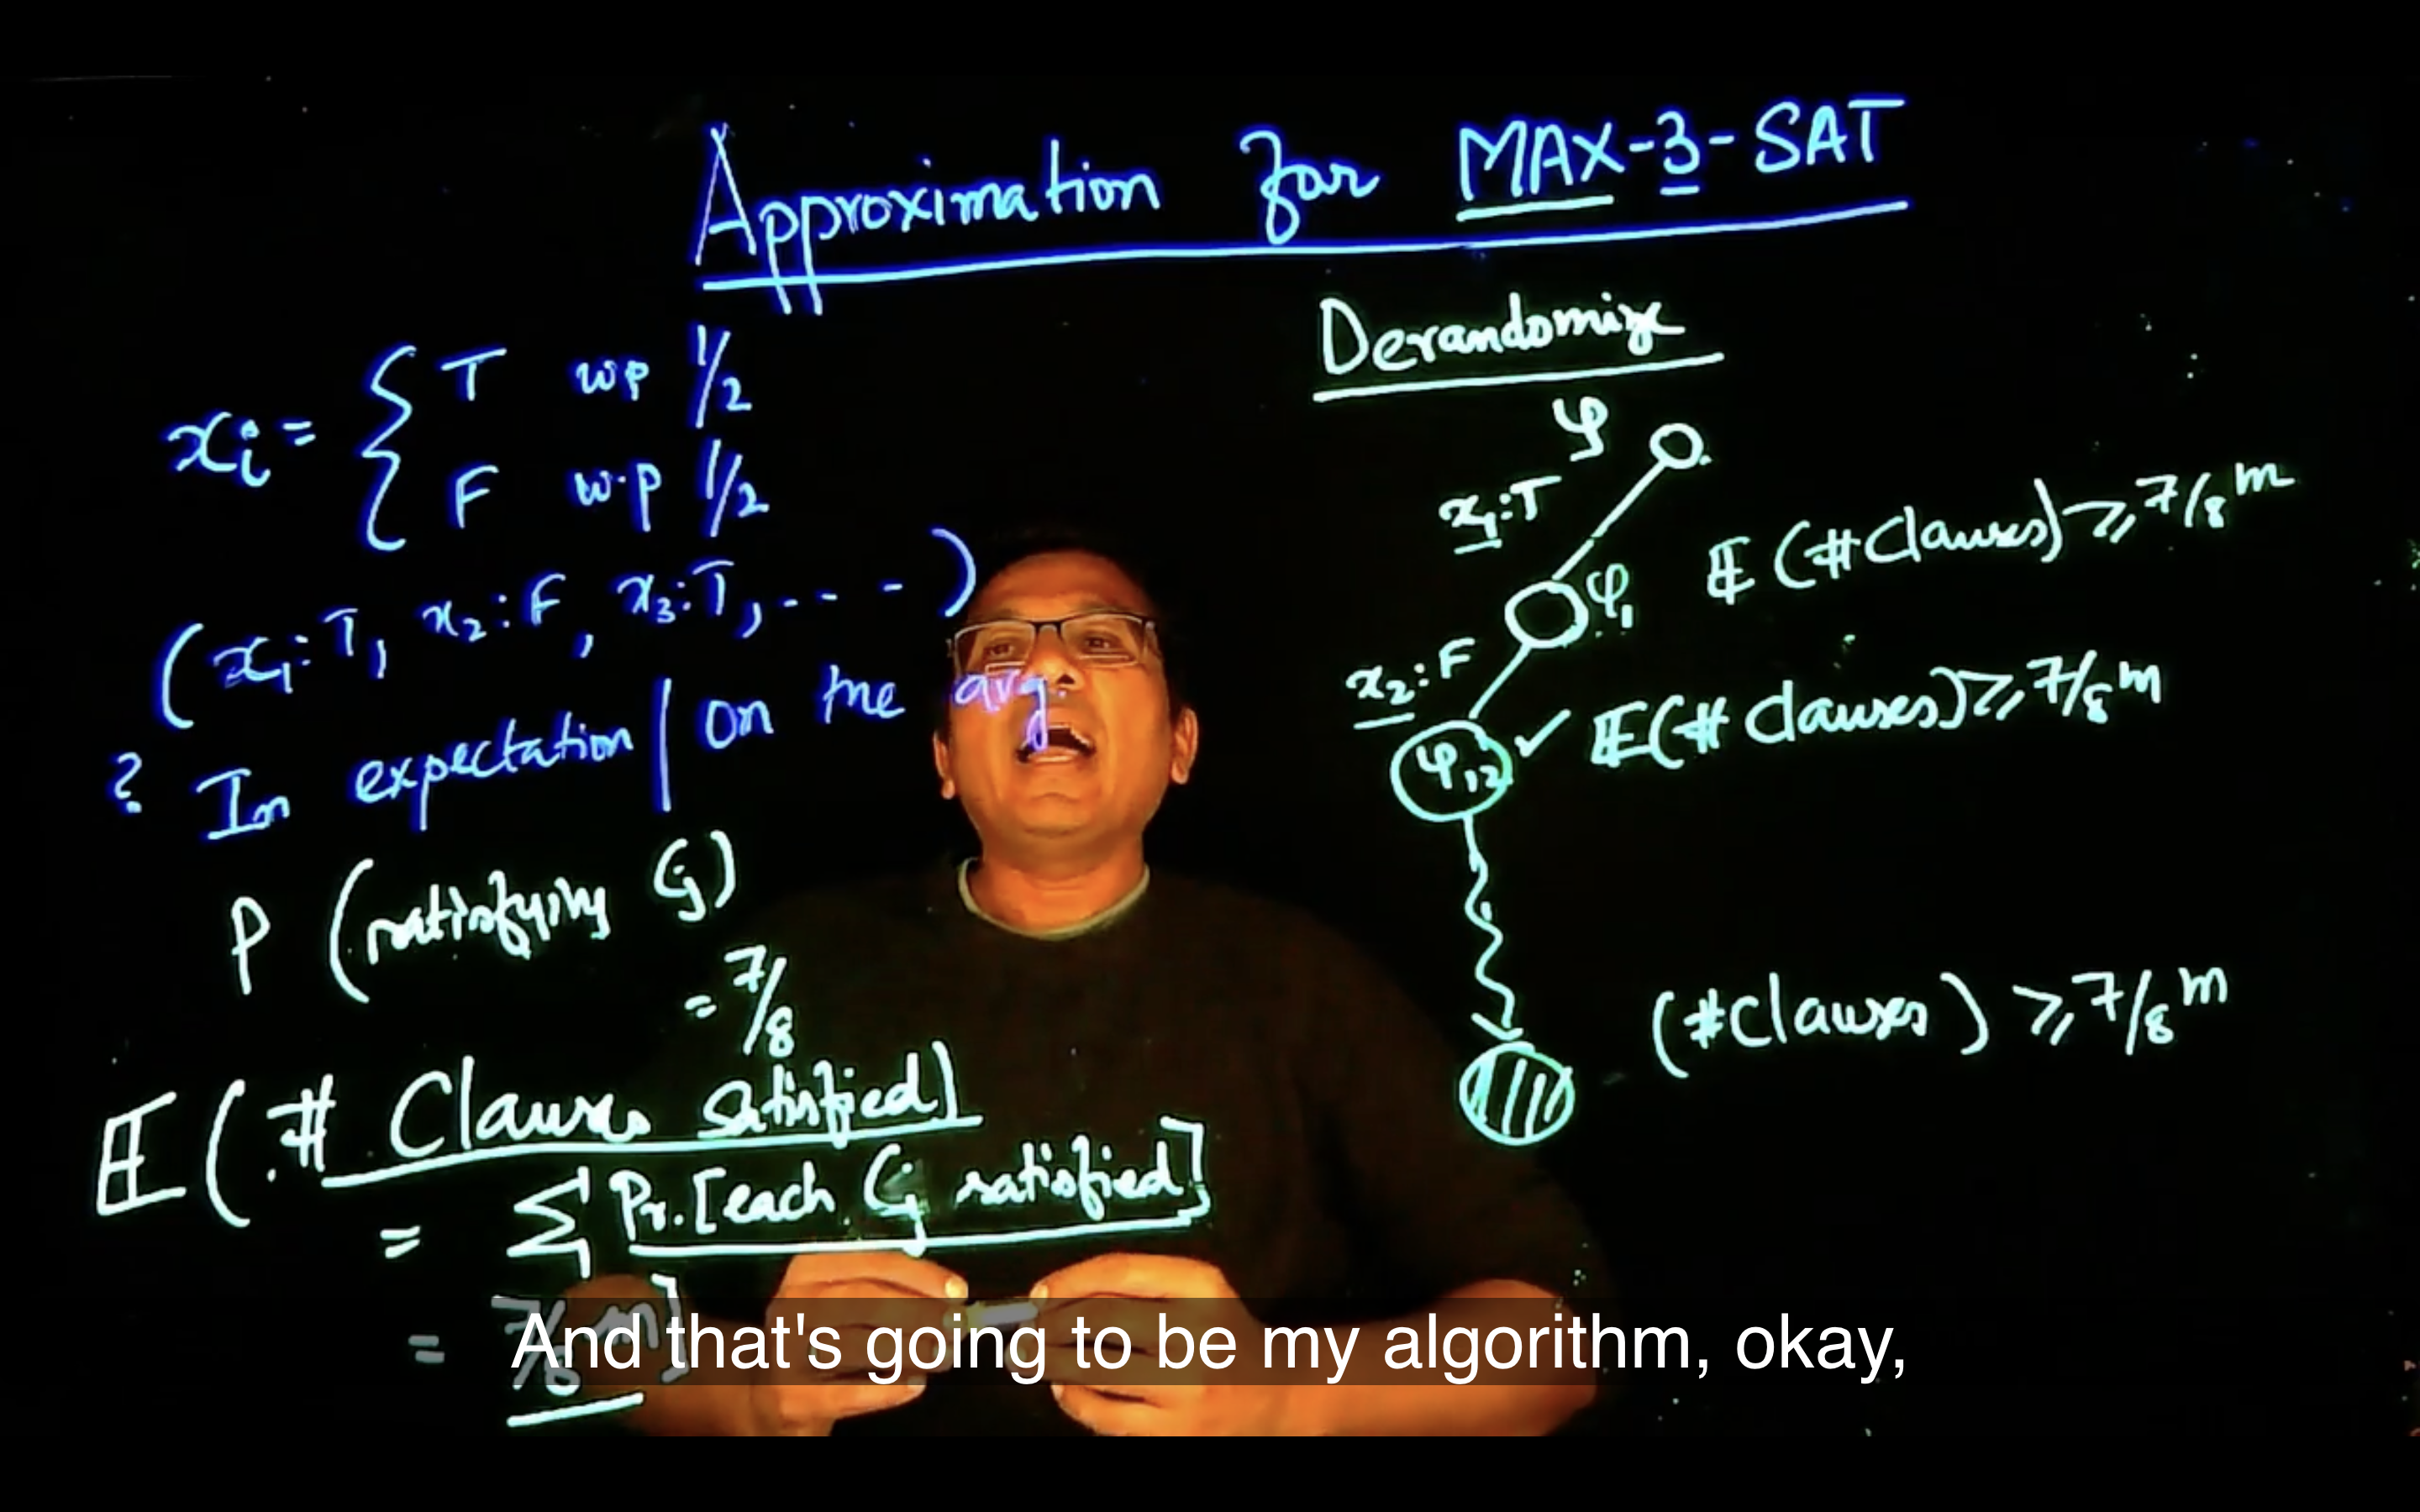 Approximation for MAX-3-SAT
xᵢ = { T wp 1/2
F w.p 1/2
(x₁:T, x₂:F, x₃:T, - - - )
? In expectation / on the avg.
P (satisfying Cⱼ)
= 7/8
𝔼 (# Clauses satisfied]
= Σ Pr.[each Cⱼ satisfied]
= 7/8 m]
Derandomize
φ
x₁:T
φ₁ 𝔼 (#Clauses) ⩾ 7/8 m
x₂:F
φ₁₂ ✓ 𝔼(# Clauses) ⩾ 7/8 m
(#Clauses) ⩾ 7/8 m
And that's going to be my algorithm, okay,